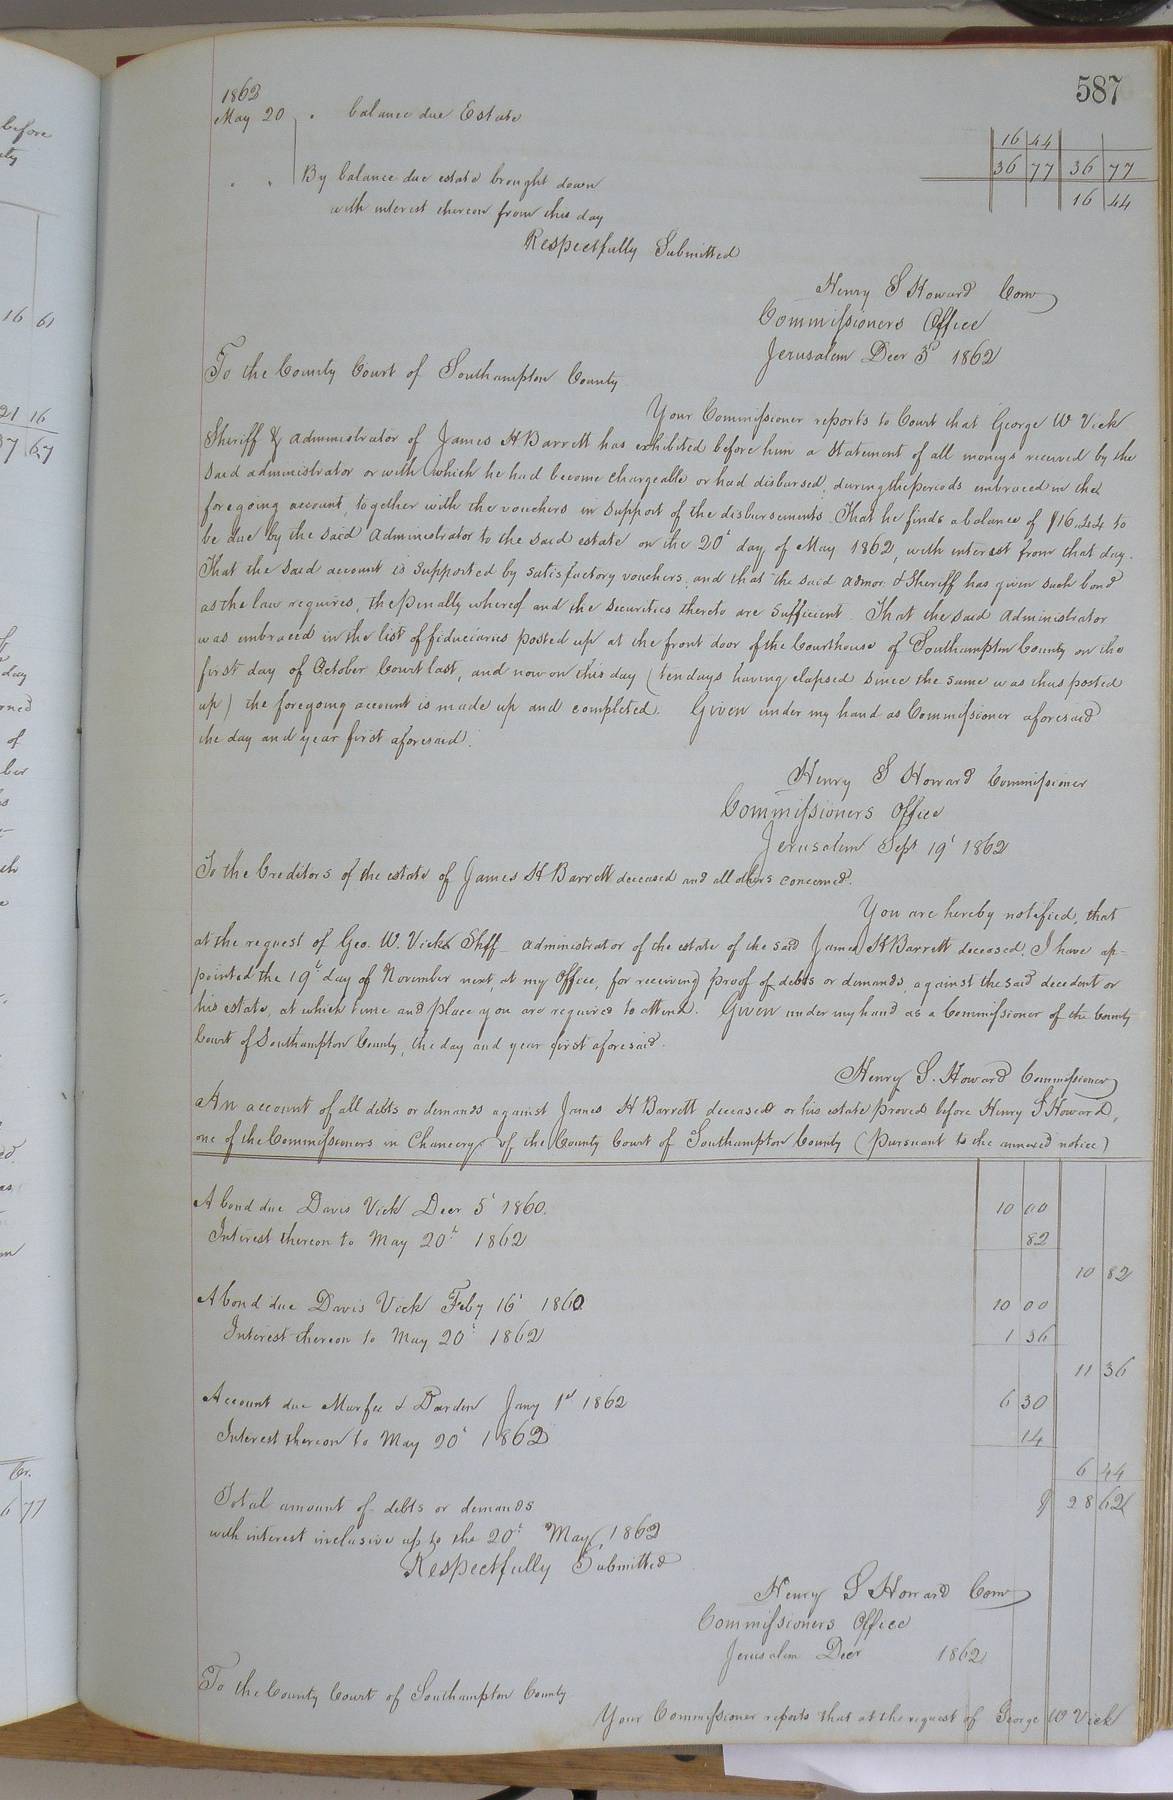 587
1862
May 20 " balance due Estate 16 44
36 77 36 77
" " By balance due estate brought down 16 44
with interest thereon from this day
Respectfully Submitted
Henry S Howard Com
Commissioners Office
Jerusalem Decr 3d 1862
To the County Court of Southampton County
Your Commissioner reports to Court that George W Vick
Sheriff & administrator of James H Barrett has exhibited before him a statement of all moneys received by the
said administrator or with which he had become chargeable or had disbursed, during the periods embraced in the
foregoing account, together with the vouchers in support of the disbursements. That he finds a balance of $16.44 to
be due by the said administrator to the said estate on the 20t day of May 1862, with interest from that day.
That the said account is supported by satisfactory vouchers, and that the said admor. & Sheriff has given such bond
as the law requires, the penalty whereof and the securities thereto are sufficient. That the said administrator
was embraced in the list of fiduciaries posted up at the front door of the Courthouse of Southampton County on the
first day of October Court last, and now on this day (ten days having elapsed since the same was thus posted
up) the foregoing account is made up and completed. Given under my hand as Commissioner aforesaid
the day and year first aforesaid.
Henry S Howard Commissioner
Commissioners Office
Jerusalem Sept 19t 1862
To the Creditors of the estate of James H Barrett deceased and all others concerned.
You are hereby notified, that
at the request of Geo. W. Vick Shff administrator of the estate of the said James H Barrett deceased, I have ap-
pointed the 19t day of November next, at my Office, for receiving proof of debts or demands, against the said decedent or
his estate, at which time and place you are required to attend. Given under my hand as a Commissioner of the County
Court of Southampton County, the day and year first aforesaid.
Henry S. Howard Commissioner
An account of all debts or demands against James H Barrett deceased or his estate proved before Henry S Howard,
one of the Commissioners in Chancery of the County Court of Southampton County (Pursuant to the annexed notice)
A bond due Davis Vick Decr 5t 1860. 10 00
Interest thereon to May 20t 1862 82
10 82
A bond due Davis Vick Feby 16t 1860 10 00
Interest thereon to May 20t 1862 1 36
11 36
Account due Murfee & Darden Jany 1st 1862 6 30
Interest thereon to May 20t 1862 14
6 44
Total amount of debts or demands $ 28 62
with interest inclusive up to the 20t May, 1862
Respectfully Submitted
Henry S Howard Com
Commissioners Office
Jerusalem Decr 1862
To the County Court of Southampton County
Your Commissioner reports that at the request of George W Vick